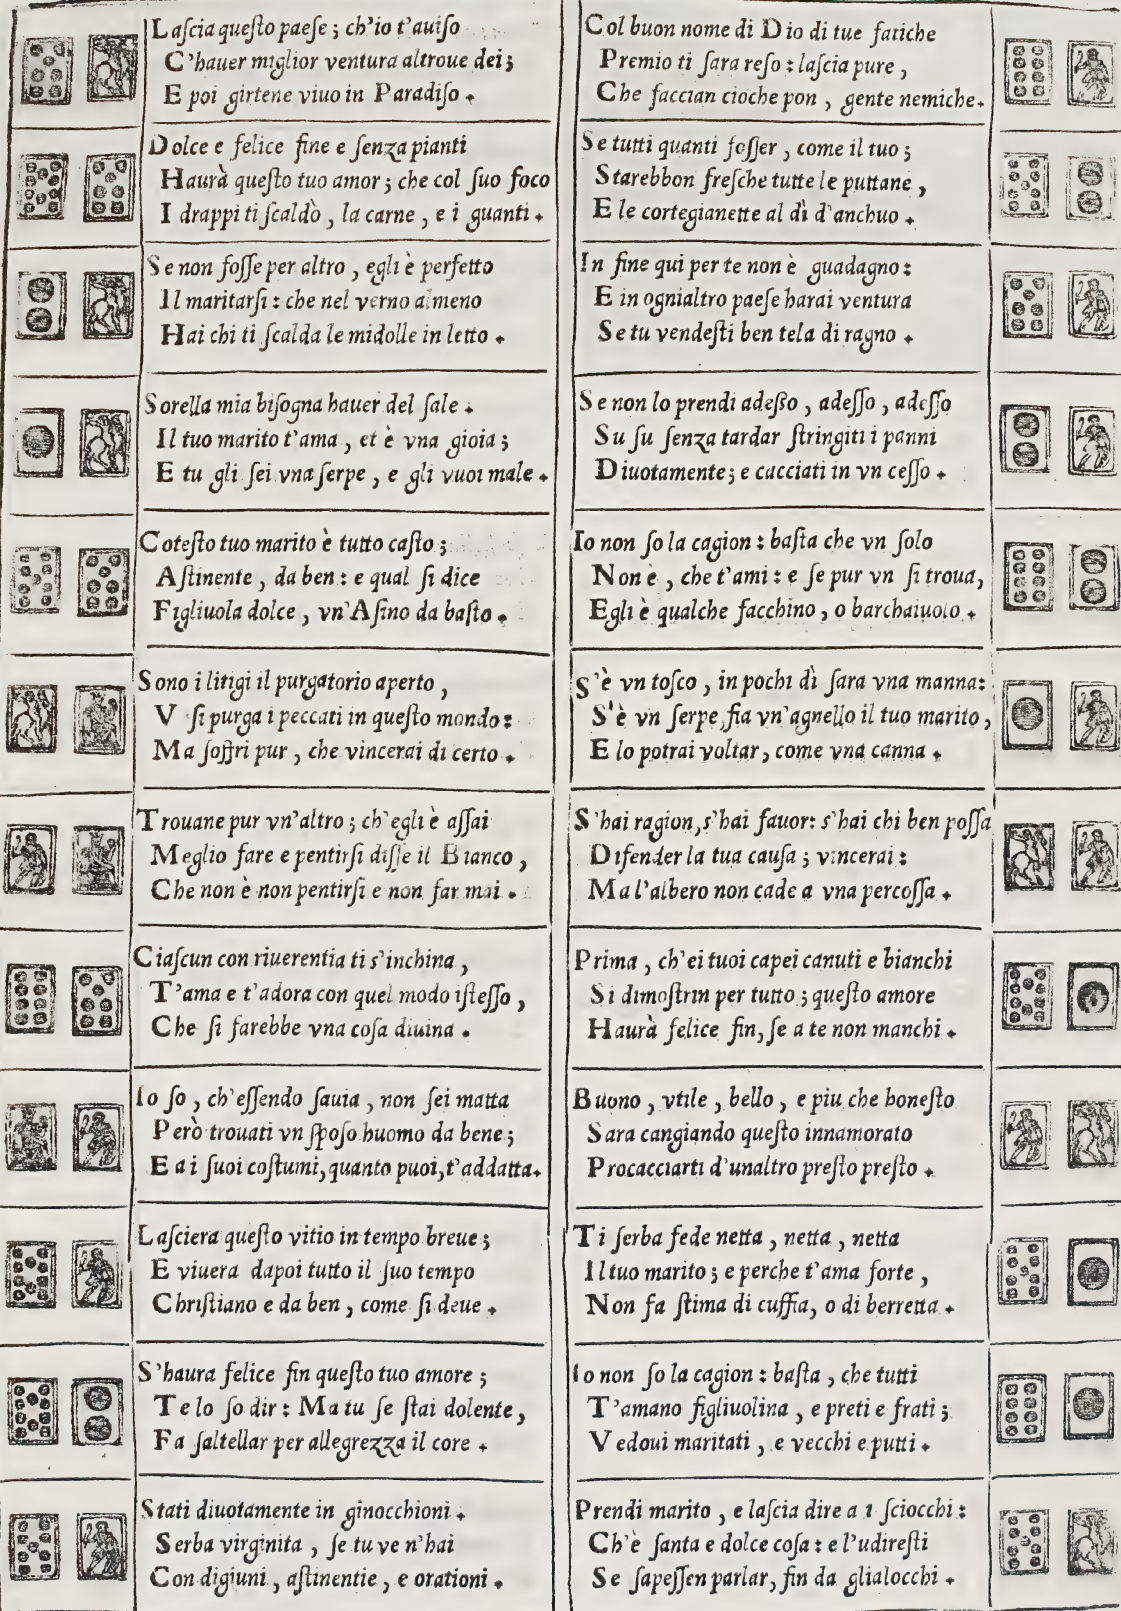 Laſcia queſto paeſe ; ch'io t'auiſo
C'hauer miglior ventura altroue dei ;
E poi girtene viuo in Paradiſo .
Dolce e felice fine e ſenza pianti
Haurà queſto tuo amor ; che col ſuo foco
I drappi ti ſcaldò , la carne , e i guanti .
Se non foſſe per altro , egli è perfetto
Il maritarſi : che nel verno almeno
Hai chi ti ſcalda le midolle in letto .
Sorella mia biſogna hauer del ſale .
Il tuo marito t'ama , et è vna gioia ;
E tu gli ſei vna ſerpe , e gli vuoi male .
Coteſto tuo marito è tutto caſto ;
Aſtinente , da ben : e qual ſi dice
Figliuola dolce , vn'Aſino da baſto .
Sono i litigi il purgatorio aperto ,
V ſi purga i peccati in queſto mondo :
Ma ſoffri pur , che vincerai di certo .
Trouane pur vn'altro ; ch'egli è aſſai
Meglio fare e pentirſi diſſe il Bianco ,
Che non è non pentirſi e non far mai .
Ciaſcun con riuerentia ti s'inchina ,
T'ama e t'adora con quel modo iſteſſo ,
Che ſi farebbe vna coſa diuina .
Io ſo , ch'eſſendo ſauia , non ſei matta
Però trouati vn ſpoſo huomo da bene ;
E a i ſuoi coſtumi, quanto puoi, t'addatta.
Laſciera queſto vitio in tempo breue ;
E viuera dapoi tutto il ſuo tempo
Chriſtiano e da ben , come ſi deue .
S'haura felice fin queſto tuo amore ;
Te lo ſo dir : Ma tu ſe ſtai dolente ,
Fa ſaltellar per allegrezza il core .
Stati diuotamente in ginocchioni .
Serba virginita , ſe tu ve n'hai
Con digiuni , aſtinentie , e orationi .
Col buon nome di Dio di tue fatiche
Premio ti ſara reſo : laſcia pure ,
Che faccian cioche pon , gente nemiche.
Se tutti quanti foſſer , come il tuo ;
Starebbon freſche tutte le puttane ,
E le cortegianette al dì d'anchuo .
In fine qui per te non è guadagno :
E in ognialtro paeſe harai ventura
Se tu vendeſti ben tela di ragno .
Se non lo prendi adeſſo , adeſſo , adeſſo
Su ſu ſenza tardar ſtringiti i panni
Diuotamente ; e cacciati in vn ceſſo .
Io non ſo la cagion : baſta che vn ſolo
Non è , che t'ami : e ſe pur vn ſi troua,
Egli è qualche facchino , o barchaiuolo .
S'è vn toſco , in pochi dì ſara vna manna:
S'è vn ſerpe, fia vn'agnello il tuo marito ,
E lo potrai voltar , come vna canna .
S'hai ragion, s'hai fauor: s'hai chi ben poſſa
Difender la tua cauſa ; vincerai :
Ma l'albero non cade a vna percoſſa .
Prima , ch'ei tuoi capei canuti e bianchi
Si dimoſtrin per tutto ; queſto amore
Haurà felice fin, ſe a te non manchi .
Buono , vtile , bello , e piu che honeſto
Sara cangiando queſto innamorato
Procacciarti d'unaltro preſto preſto .
Ti ſerba fede netta , netta , netta
Il tuo marito ; e perche t'ama forte ,
Non fa ſtima di cuffia, o di berretta .
Io non ſo la cagion : baſta , che tutti
T'amano figliuolina , e preti e frati ;
Vedoui maritati , e vecchi e putti .
Prendi marito , e laſcia dire a i ſciocchi :
Ch'è ſanta e dolce coſa : e l'udireſti
Se ſapeſſen parlar, fin da glialocchi .